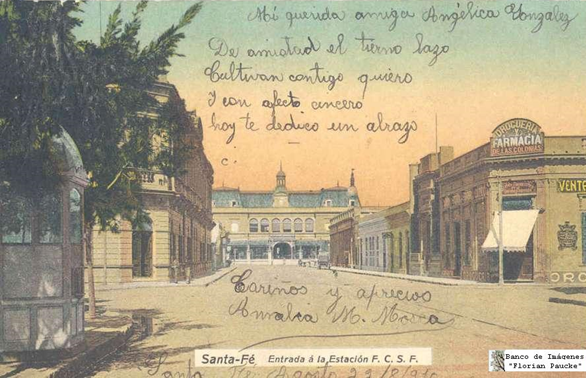 Mi querida amiga Angélica Gonzalez
De amistad el tierno lazo
Cultivar contigo quiero
Y con afecto cincero
hoy te dedico un abrazo
DROGUERIA
Y
FARMACIA
DE LAS COLONIAS
VENTE
DRO
Cariños y aprecios
Amalia M.
Santa-Fé Entrada á la Estación F. C. S. F.
Santa Fe Agosto 29/910
Banco de Imágenes
"Florian Paucke"